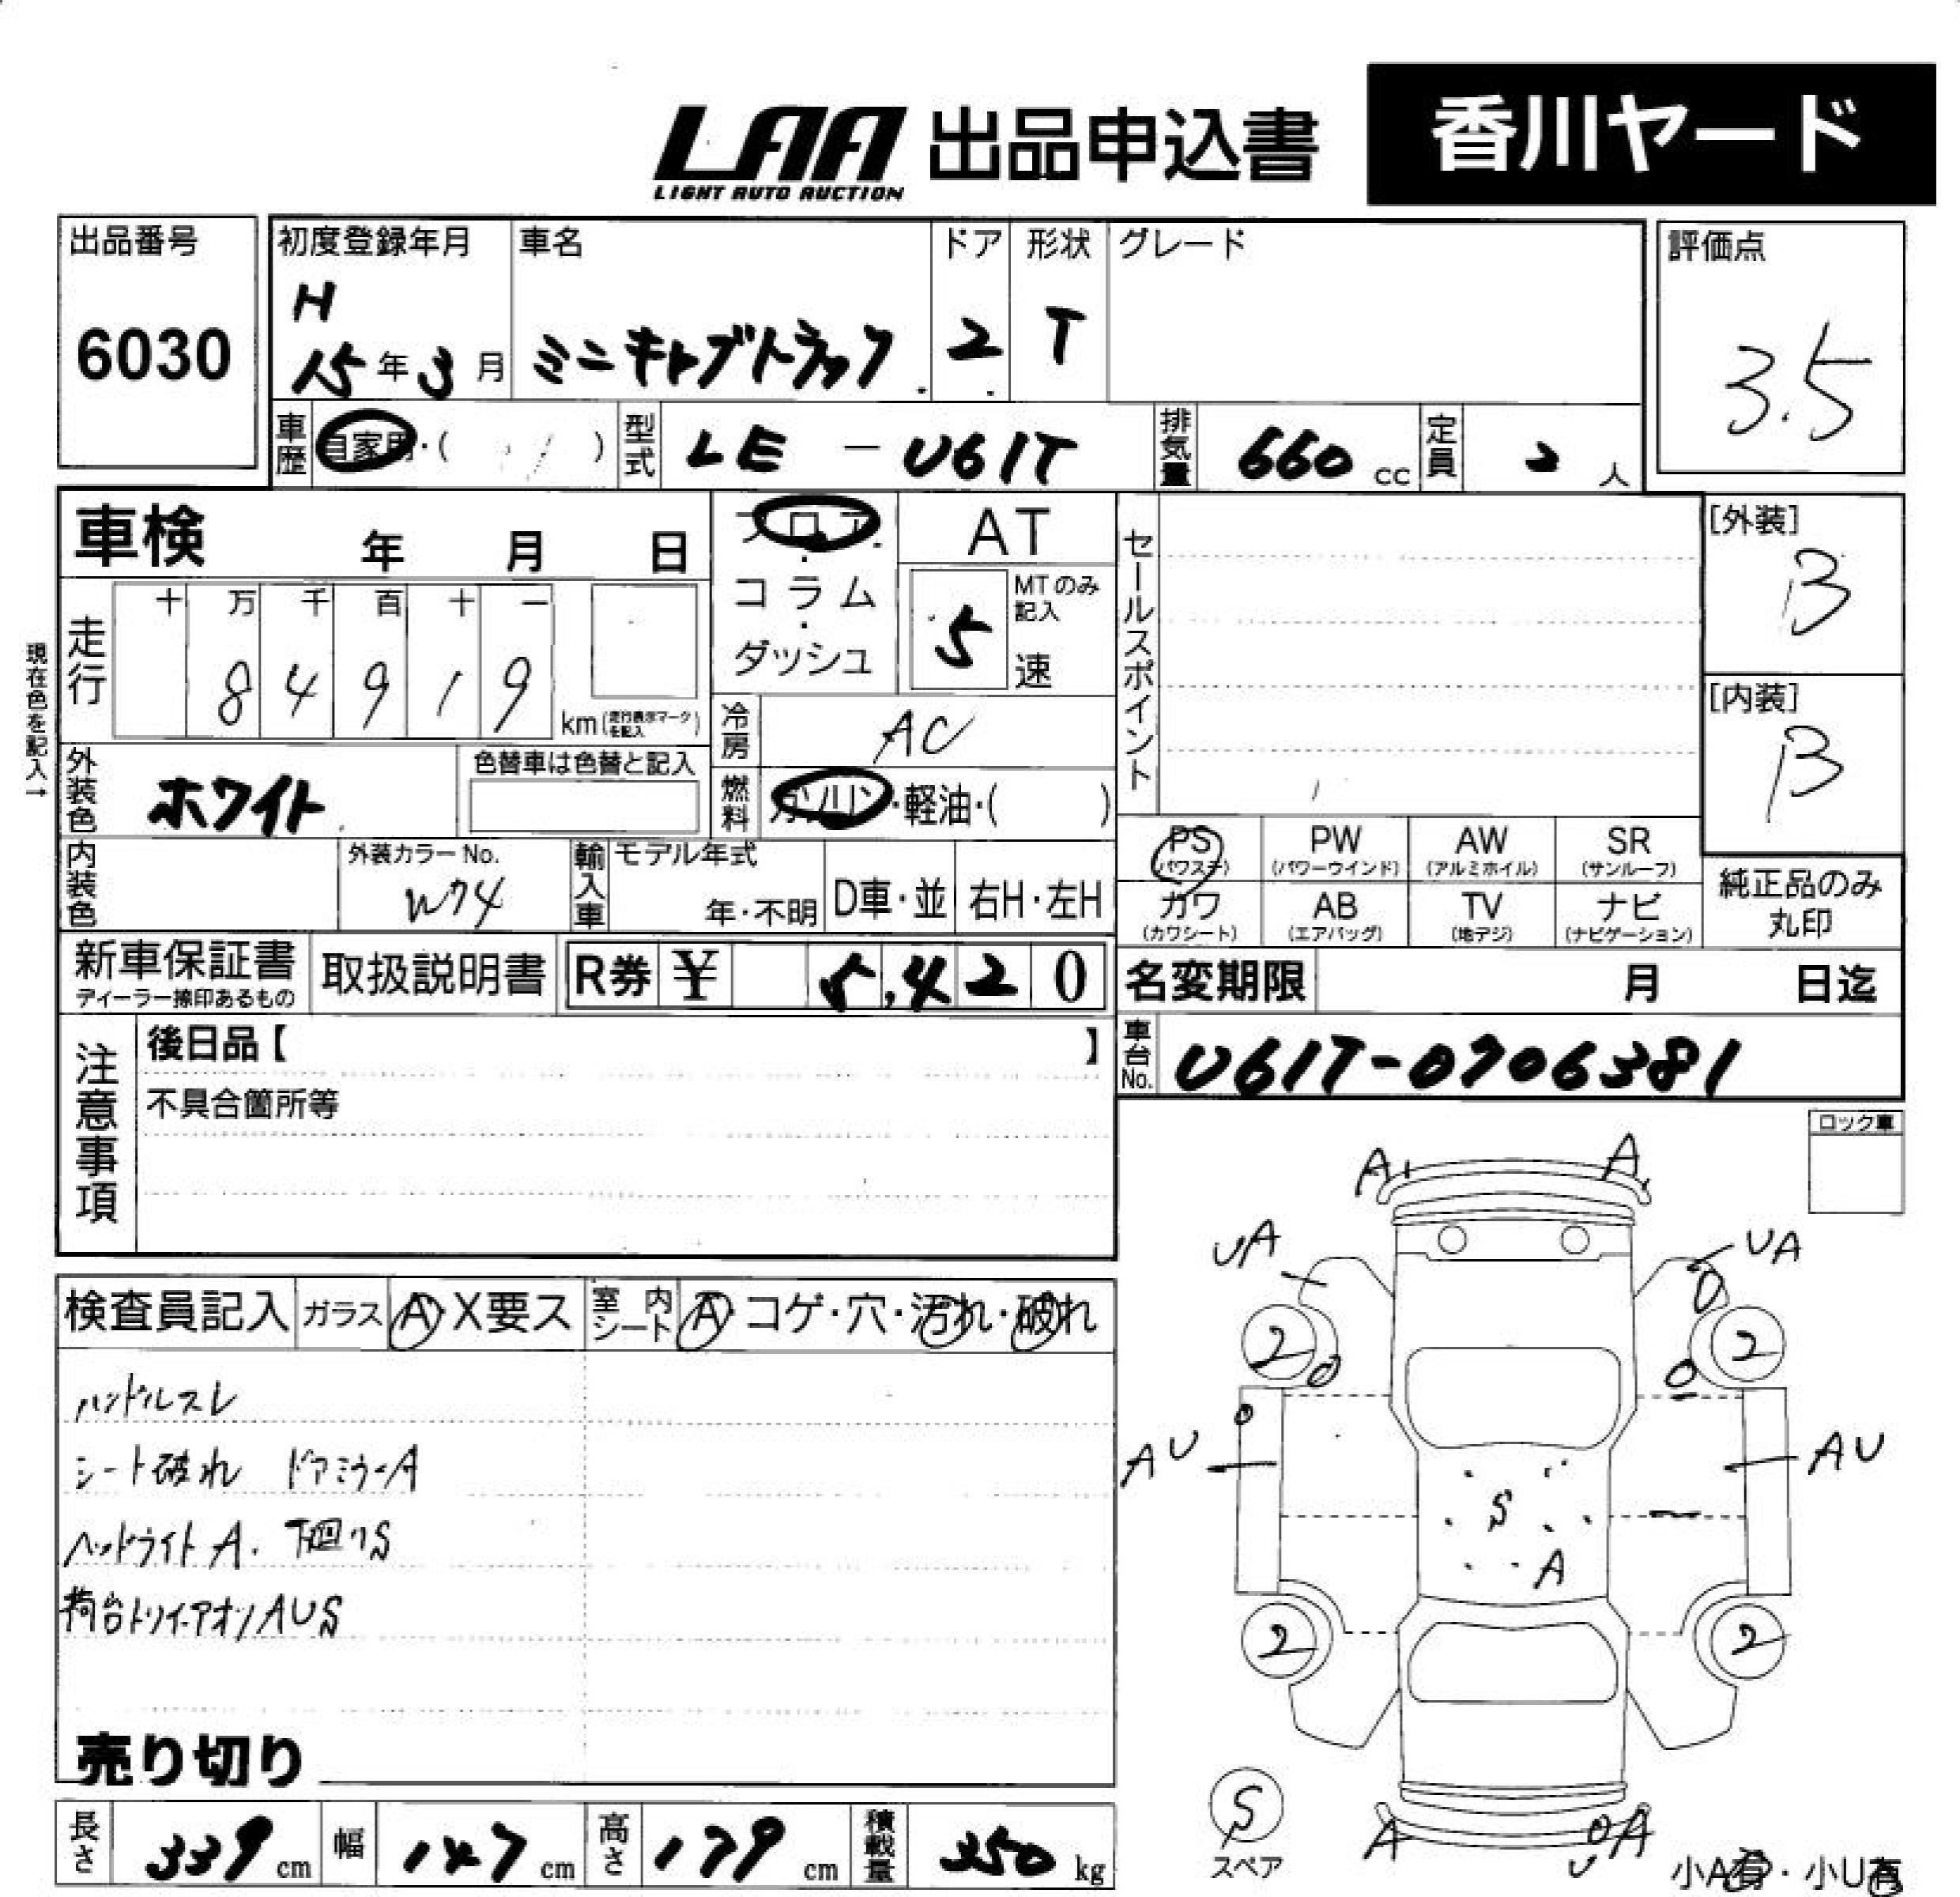 LAA 出品申込書 香川ヤード
LIGHT AUTO AUCTION
出品番号 初度登録年月 車名 ドア 形状 グレード 評価点
6030 H 15年3月 ミニキャブトラック 2 T 3.5
車歴 自家用・( ) 型式 LE - U61T 排気量 660 cc 定員 2 人
車検 年 月 日
フロア・コラム・ダッシュ
AT
5 速 MTのみ記入
セールスポイント
[外装] B
[内装] B
現在色を記入→
走行 十 万 千 百 十 一
8 4 9 1 9 km (走行表示マークを記入)
冷房 AC
外装色 ホワイト 色替車は色替と記入
燃料 ガソリン・軽油・( )
内装色 外装カラーNo. W74 輸入車 モデル年式 年・不明 D車・並 右H・左H
PS (パワステ) PW (パワーウインド) AW (アルミホイル) SR (サンルーフ)
カワ (カワシート) AB (エアバッグ) TV (地デジ) ナビ (ナビゲーション)
純正品のみ
丸印
新車保証書 ディーラー捺印あるもの 取扱説明書 R券 ¥ 5,420
名変期限 月 日迄
車台No. U61T-0706381
注意事項
後日品【 】
不具合箇所等
ロック車
検査員記入 ガラス A・X要ス 室内シート A・コゲ・穴・汚れ・破れ
ハンドルスレ
シート破れ ドアミラーA
ヘッドライトA. 下廻りS
荷台トリイ・アオリAUS
売り切り
長さ 339 cm 幅 147 cm 高さ 179 cm 積載量 350 kg
A A
UA UA
2 2
AU AU
S
A
2 2
S
スペア
A UA
小A有・小U有